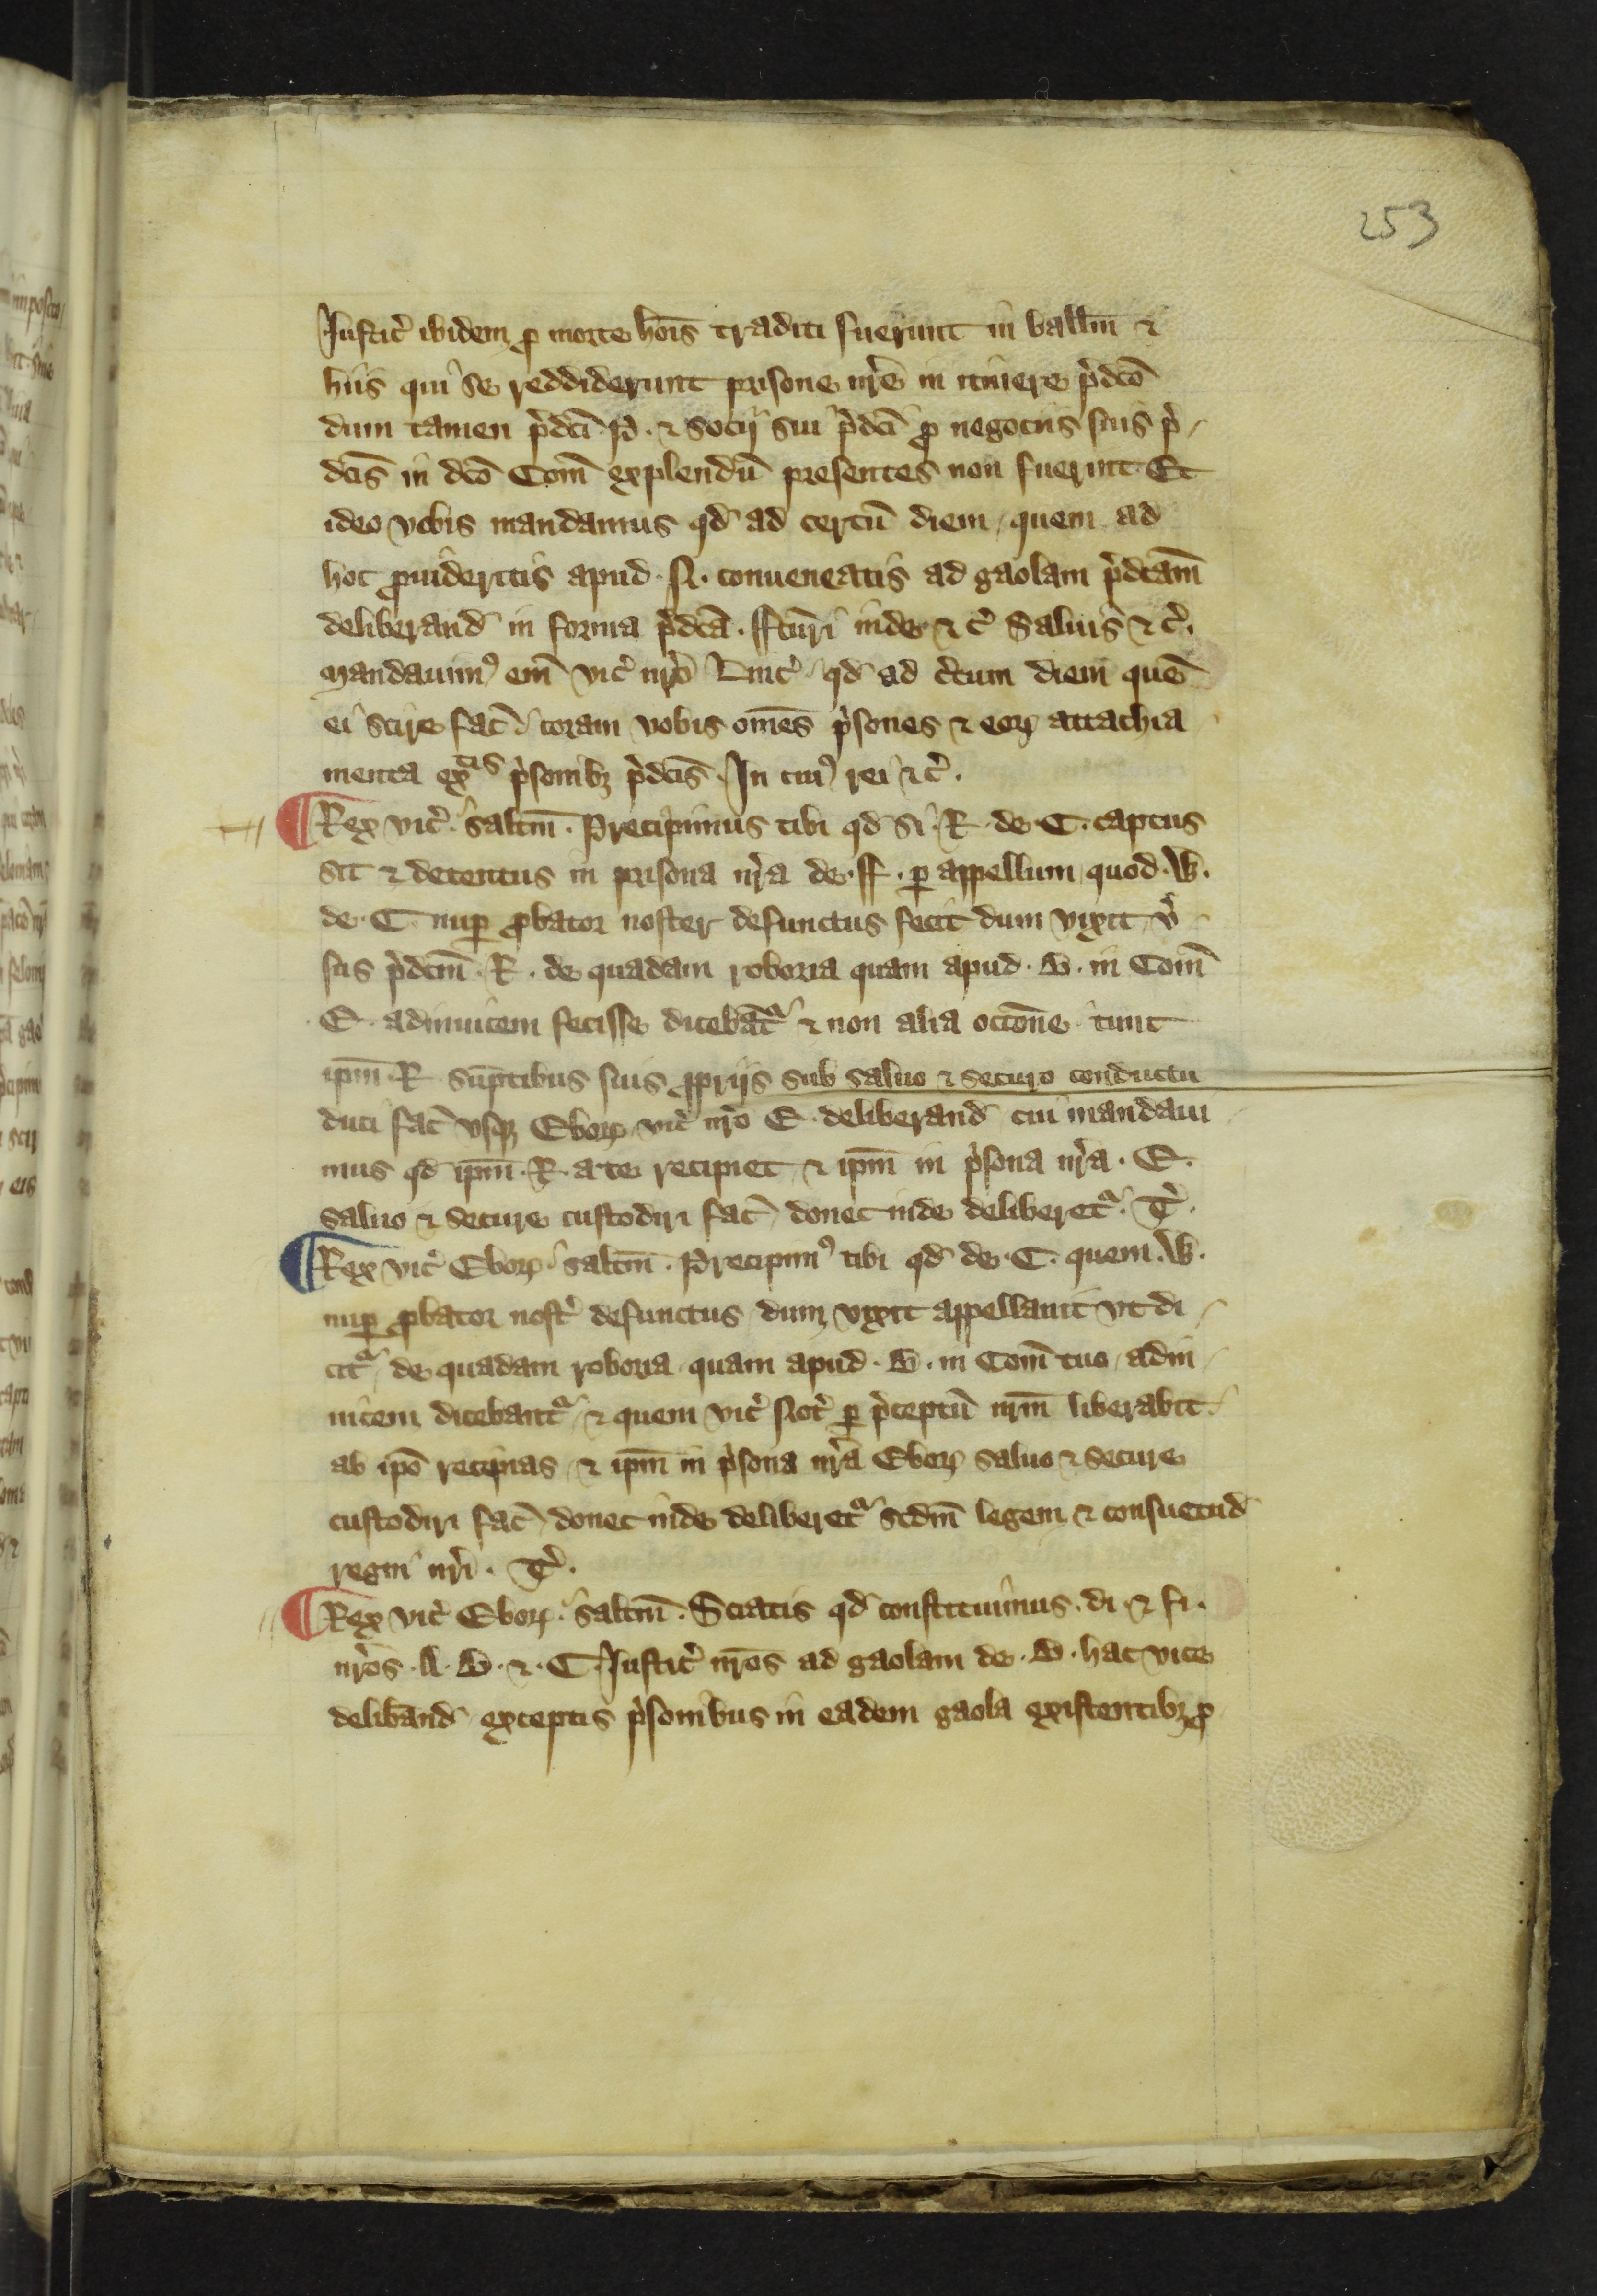 253
Justic̉ ibidem ꝓ morte hoīs traditi fuerunt in ballm̄ ⁊
hiis qui se reddiderunt prisone nr̄e in itinere p̉dc̄o
dum tamen p̉dc̄i P. ⁊ socij sui p̉dc̄i ꝓ negociis suis p̉
dc̄is in dc̄o Com̄ explendū presentes non fuerint. Et
ideo vobis mandamus qd̄ ad certū diem quem ad
hoc ꝓuideritis apud .N. conueneatis ad gaolam p̉dc̄am
deliberand̄ in forma p̉dc̄a. ffc̄uri inde ⁊ c̉ Saluis ⁊ c̉.
Mandauimꝰ em̄ vic̉ nr̄o Linc̉ qd̄ ad c̉tum diem quē
ei scire fac̄ coram vobis om̄es p̉sones ⁊ eoꝝ attachia
menta ex p̉sonibꝫ p̉dc̄is. In cuiꝰ rei ⁊ c̉.
¶ Rex vic̉ . salt̄m . Precipimus tibi qd̄ si .R. de .C. captus
sit ⁊ detentus in prisona nr̄a de .ff. ꝑ appellum quod .W.
de .C. nuꝑ ꝓbator noster defunctus fecit dum vixit v̉
sus p̉dc̄m .R. de quadam roboria quam apud .B. in Com̄
E. adinuicem fecisse dicebat᷑ ⁊ non alia occōne tunc
ip̄m .R. sūptibus suis ꝓpriis sub saluo ⁊ securo conductu
duci fac̄ vsqꝫ Eboꝝ vic̉ nr̄o E. deliberand̄ cui mandaui
mus qd̄ ip̄m .R. a te recipiet ⁊ ip̄m in p̉sona nr̄a .E.
saluo ⁊ secure custodiri fac̄ donec inde deliberet᷑. T̉.
¶ Rex vic̉ Eboꝝ . salt̄m . Precipimꝰ tibi qd̄ de .C. quem .W.
nuꝑ ꝓbator nost̉ defunctus dum vixit appellauit vt di
cit᷑ de quadam roboria quam apud .B. in Com̄ tuo adin
uicem dicebant᷑ ⁊ quem vic̉ Not̉ ꝑ p̉ceptū nr̄m liberabit
ab ip̄o recipias ⁊ ip̄m in p̉sona nr̄a Eboꝝ saluo ⁊ secure
custodiri fac̄ donec inde deliberet᷑ scd̄m legem ⁊ consuetud̄
regni nr̄i . T̉.
¶ Rex vic̉ Eboꝝ . salt̄m . Sciatis qd̄ constituimus . di . ⁊ fi .
nr̄os .A. B. ⁊ .C. Justic̉ nr̄os ad gaolam de .B. hac vice
delib̄and̄ exceptis p̉sonibus in eadem gaola existentibꝫ ꝓ